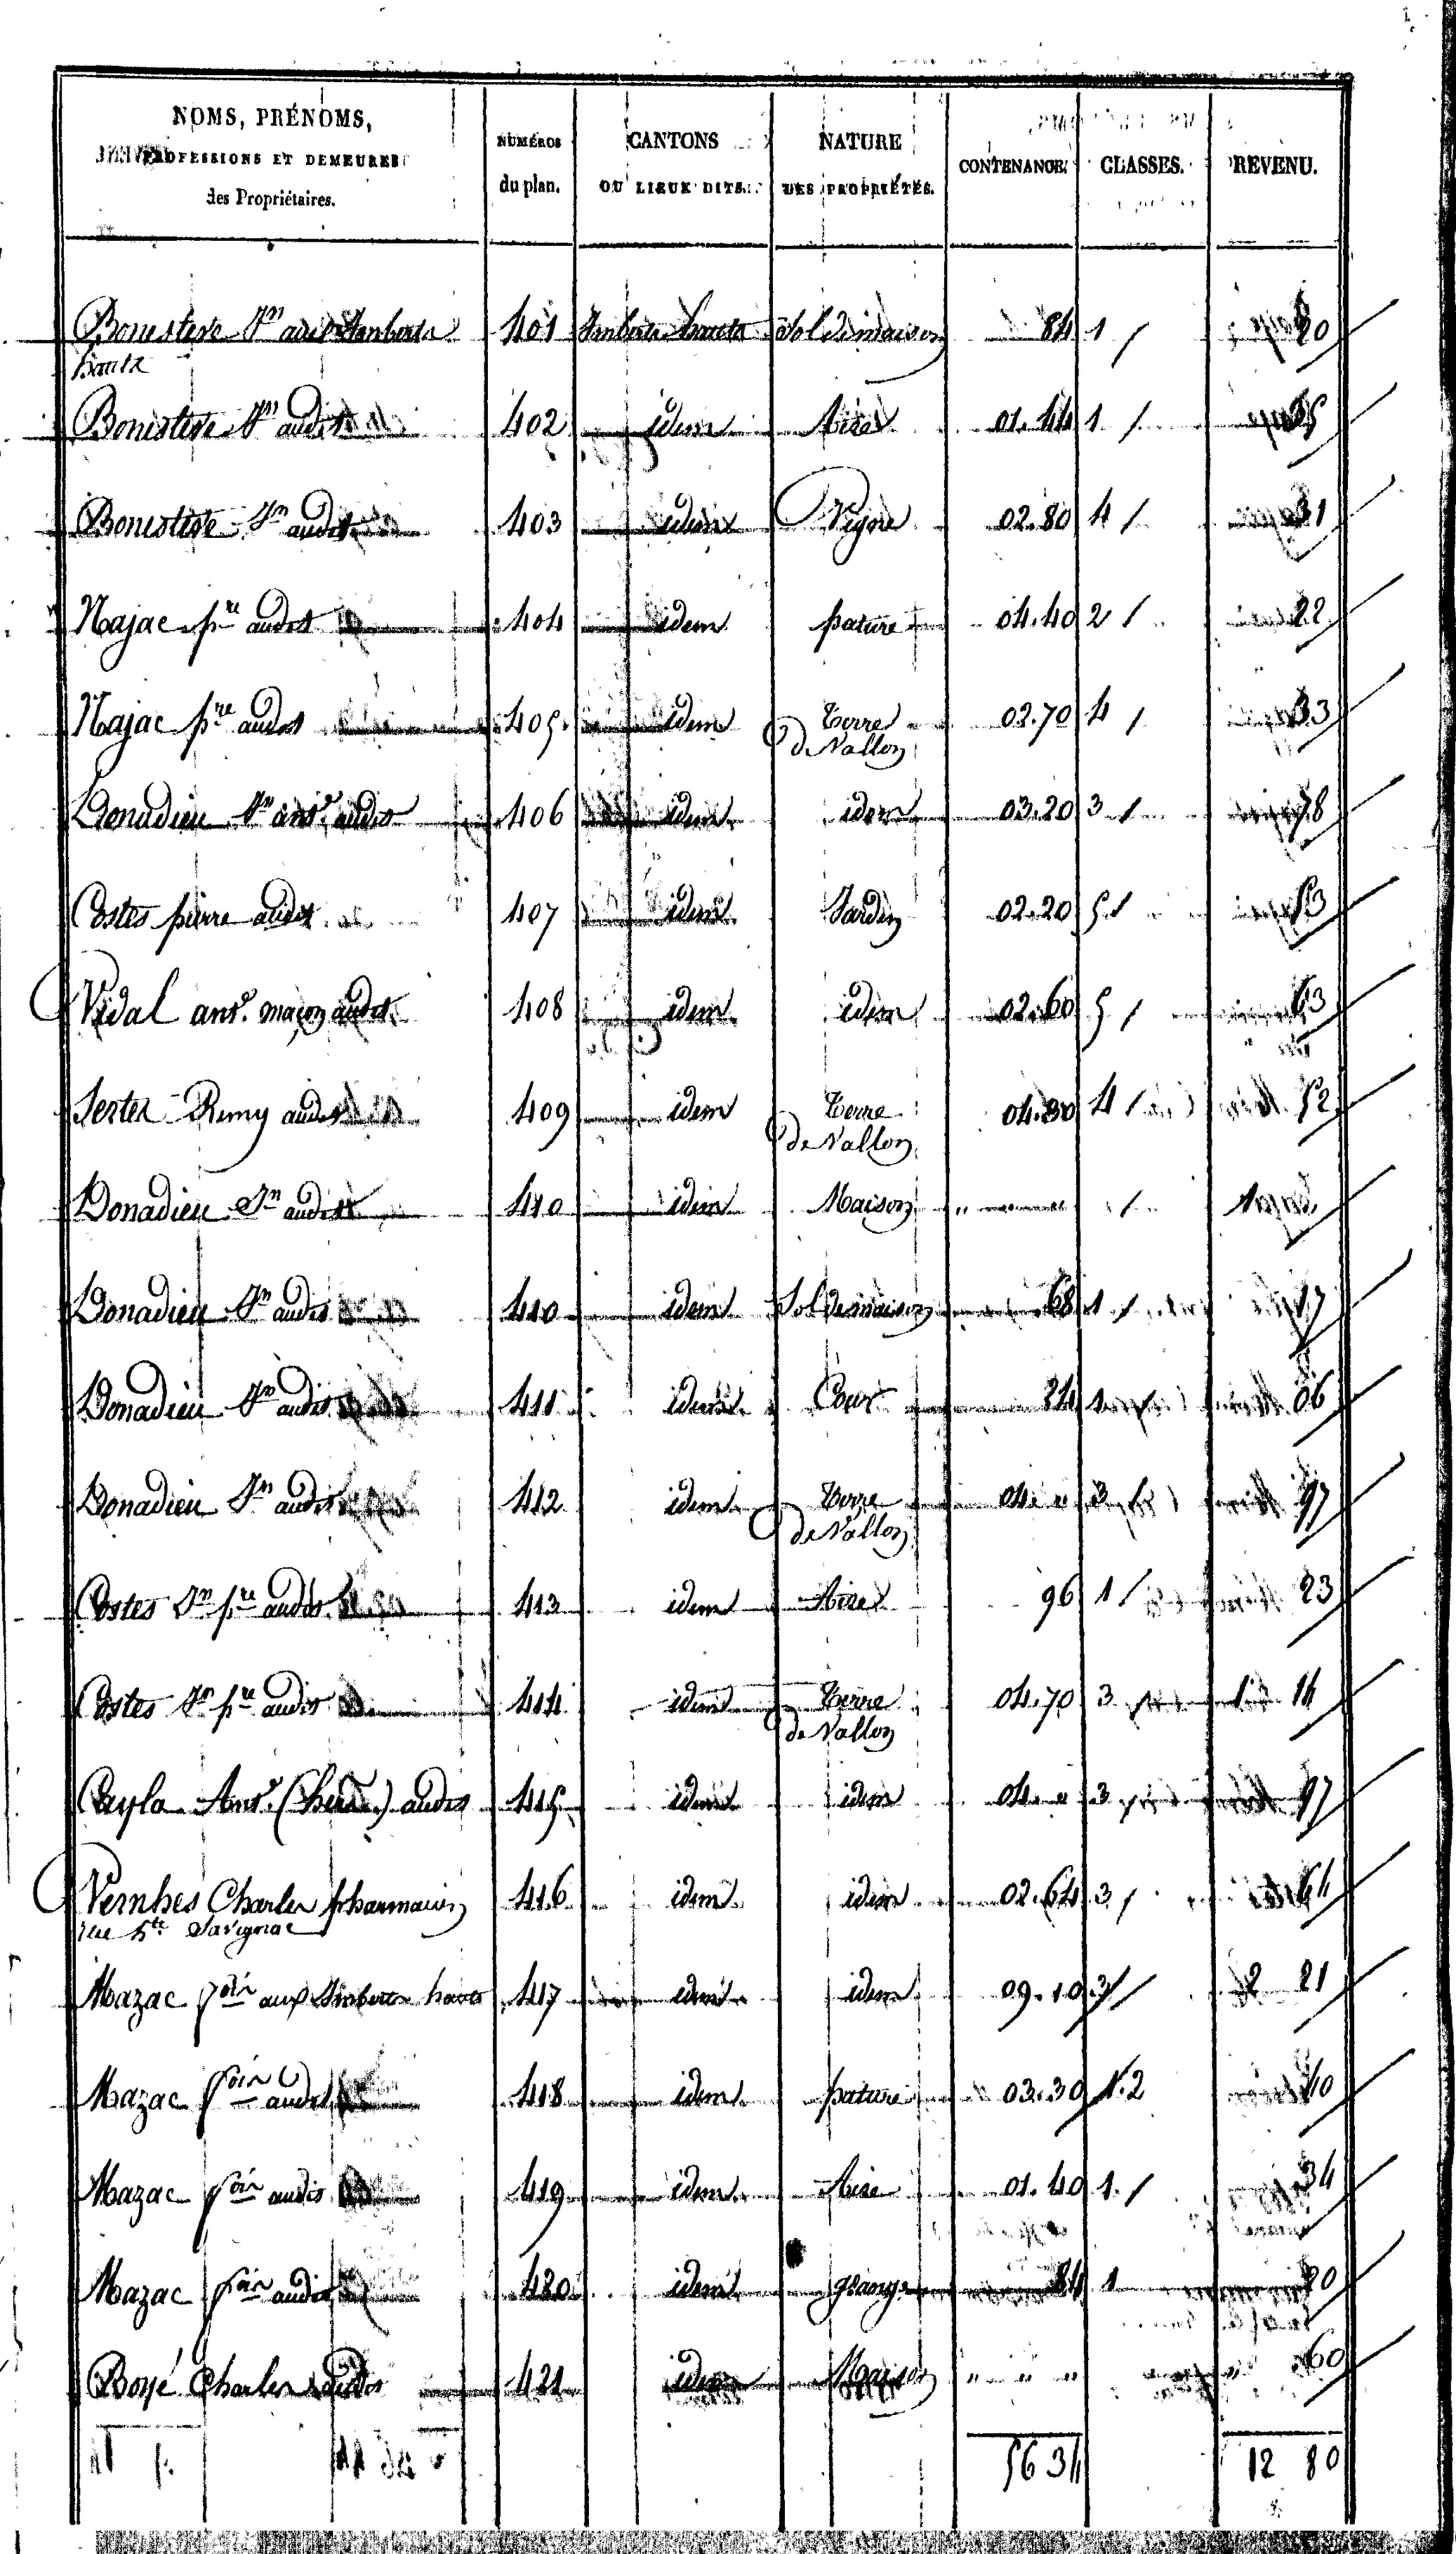 NOMS, PRÉNOMS, PROFESSIONS ET DEMEURES des Propriétaires. NUMÉROS du plan. CANTONS OU LIEUX DITS. NATURE DES PROPRIÉTÉS. CONTENANCE. CLASSES. REVENU.
Bonestève Jn aux Imberts 401 Imberts hauts Sol de maison 84 1 20
hauts
Bonestève Jn audit 402 idem Aire 01.44 1 35
Bonestève Jn audit 403 idem Vigne 02.80 4 31
Najac pre audit 404 idem pature 04.40 2 22
Najac pre audit 405 idem Terre de Vallon 02.70 4 33
Donadieu Jn ant. audit 406 idem idem 03.20 3 78
Costes pierre audit 407 idem Jardin 02.20 5 53
Vidal ant. maçon audit 408 idem idem 02.60 5 63
Serter Remy audit 409 idem Terre de Vallon 04.30 4 52
Donadieu Jn audit 410 idem Maison " 1
Donadieu Jn audit 410 idem Sol de maison 68 1 17
Donadieu Jn audit 411 idem Cour 24 1 06
Donadieu Jn audit 412 idem Terre de Vallon 04. " 3 97
Costes Jn pre audit 413 idem Aire 96 1 23
Costes Jn pre audit 414 idem Terre de Vallon 04.70 3 1 14
Cayla Ant. (hérs.) audit 415 idem idem 04. " 3 97
Vernhes Charles pharmacien 416 idem idem 02.64 3 64
rue hte Savignac
Mazac aux Imberts hauts 417 idem idem 09.10 3 2 21
Mazac audit 418 idem pature 03.30 1.2 40
Mazac audit 419 idem Aire 01.40 1 34
Mazac audit 420 idem grange 84 1 20
Boyé Charles audit 421 idem Maison " " " 60
56 34 12 80